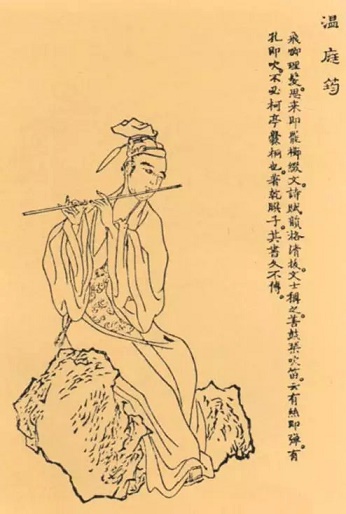 温庭筠
飛卿理髮。思來即罷櫛綴文。詩賦韻格清拔。文士稱之。善鼓琴吹笛。云有絲即彈。有
孔即吹。不必柯亭爨桐也。著乾𦠆子。其書久不傳。